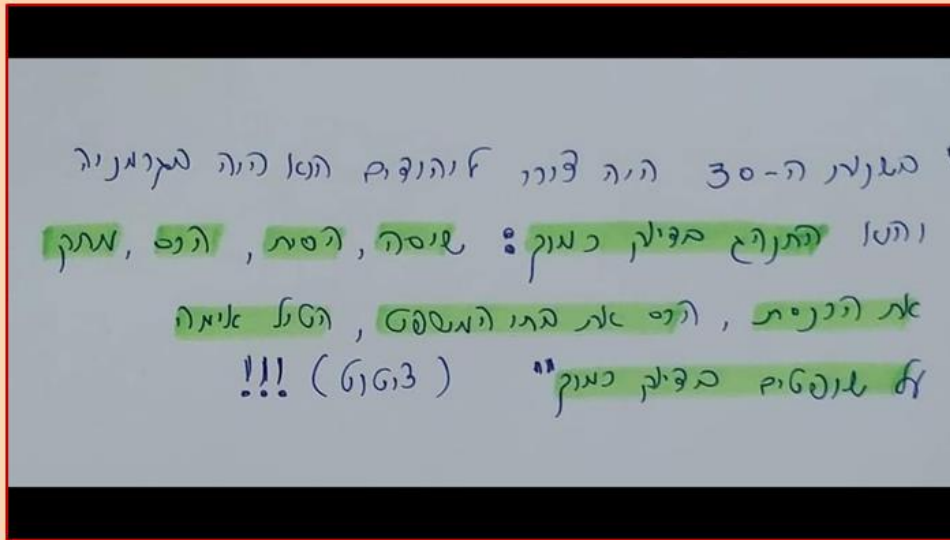 "בשנות ה-30 היה צורר ליהודים הוא היה בגרמניה
והוא התנהג בדיוק כמוך: שיסה, הסית, הרס, מחק
את הכנסת, הרס את בתי המשפט, הטיל אימה
על שופטים בדיוק כמוך" (ציטוט)!!!